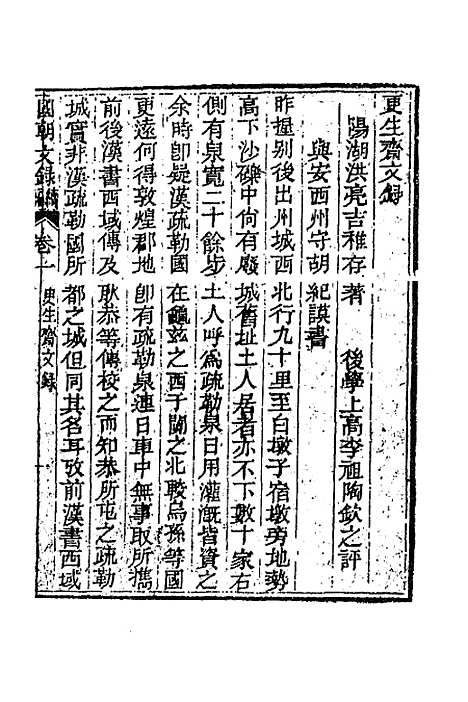 更生齋文錄
陽湖洪亮吉稚存著　後學上高李祖陶欽之評
與安西州守胡紀謨書
昨握別後出州城西北行九十里至白墩子宿墩旁地勢
高下沙磧中尙有廢城舊址土人居者亦不下數十家右
側有泉寬二十餘步土人呼爲疏勒泉日用灌漑皆資之
余時卽疑漢疏勒國在龜兹之西于闐之北㪅烏孫等國
更遠何得敦煌郡地卽有疏勒泉連日車中無事取所攜
前後漢書西域傳及耿恭等傳校之而知恭所屯之疏勒
城實非漢疏勒國所都之城但同其名耳攷前漢書西域
國朝文錄續編　卷一　更生齋文錄